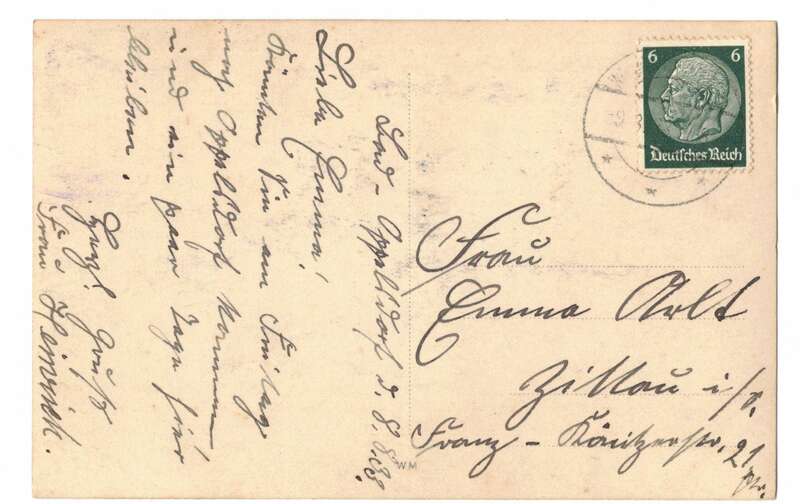 Bad-Oppelsdorf d. 8.8.33
Liebe Emma!
Könnten Sie am Freitag
nach Oppelsdorf kommen
und ein paar Tage hier
bleiben.
Herzl. Grüße
Frau Heinrich.
6 6
Deutsches Reich
Frau
Emma Arlt
Zittau i/s.
Franz-Könitzerstr. 21
WM